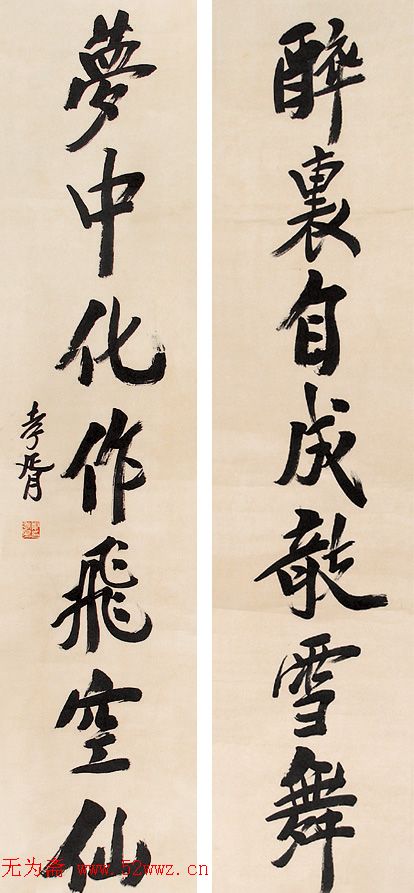 醉裏自成雪舞
夢中化作飛空仙
孝胥
无为斋 www.52wwz.cn